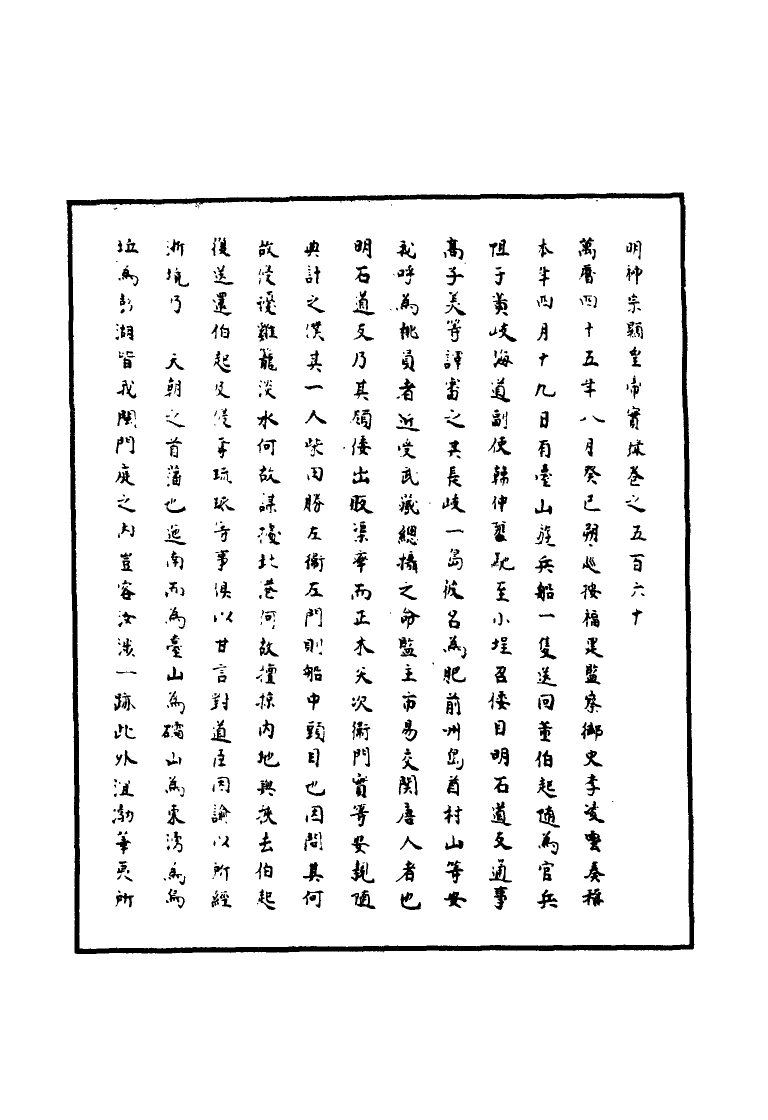 明神宗顯皇帝實錄卷之五百六十
萬曆四十五年八月癸巳朔巡按福建監察御史李凌雲奏稱
本年四月十九日有臺山遊兵船一隻送回董伯起隨為官兵
阻于黃岐海道副使韓仲雍馳至小埕召倭目明石道友通事
高子美等譯審之其長岐一島彼名為肥前州島酋村山等安
我呼為桃員者近受武藏總攝之命監主市易交関唐人者也
明石道友乃其領倭出販渠率而正木矢次衛門實等安親随
典計之僕其一人柴田勝左衛左門則船中頭目也因問其何
故侵擾雞籠淡水何故謀擾北港何故擅掠內地與挾去伯起
復送還伯起及侵奪琉球等事俱以甘言對道臣因諭以所經
浙境乃　天朝之首藩也迤南而為臺山為礵山為東湧為烏
坵為彭湖皆我閩門庭之內豈容汝涉一跡此外溟渤華夷所